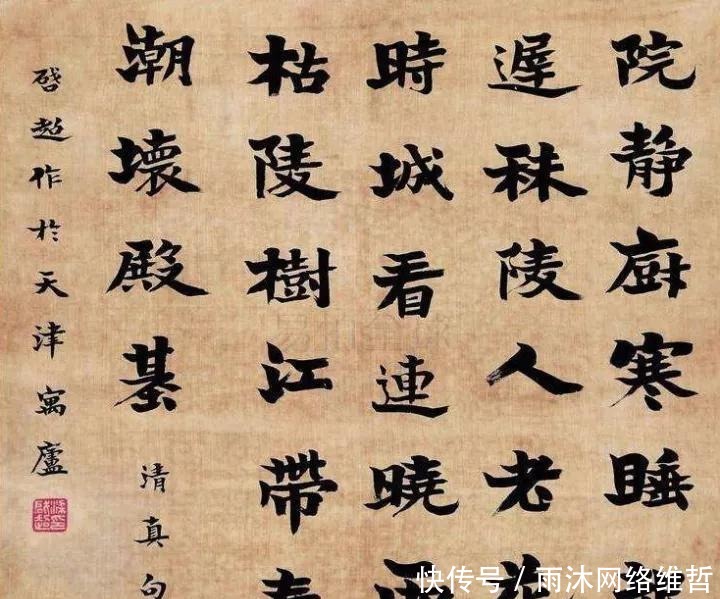 院靜廚寒睡
遲秣陵人老
時城看連曉
枯陵樹江帶
潮壞殿基
清真句
啓超作於天津寓廬
快传号/雨沐网络维哲